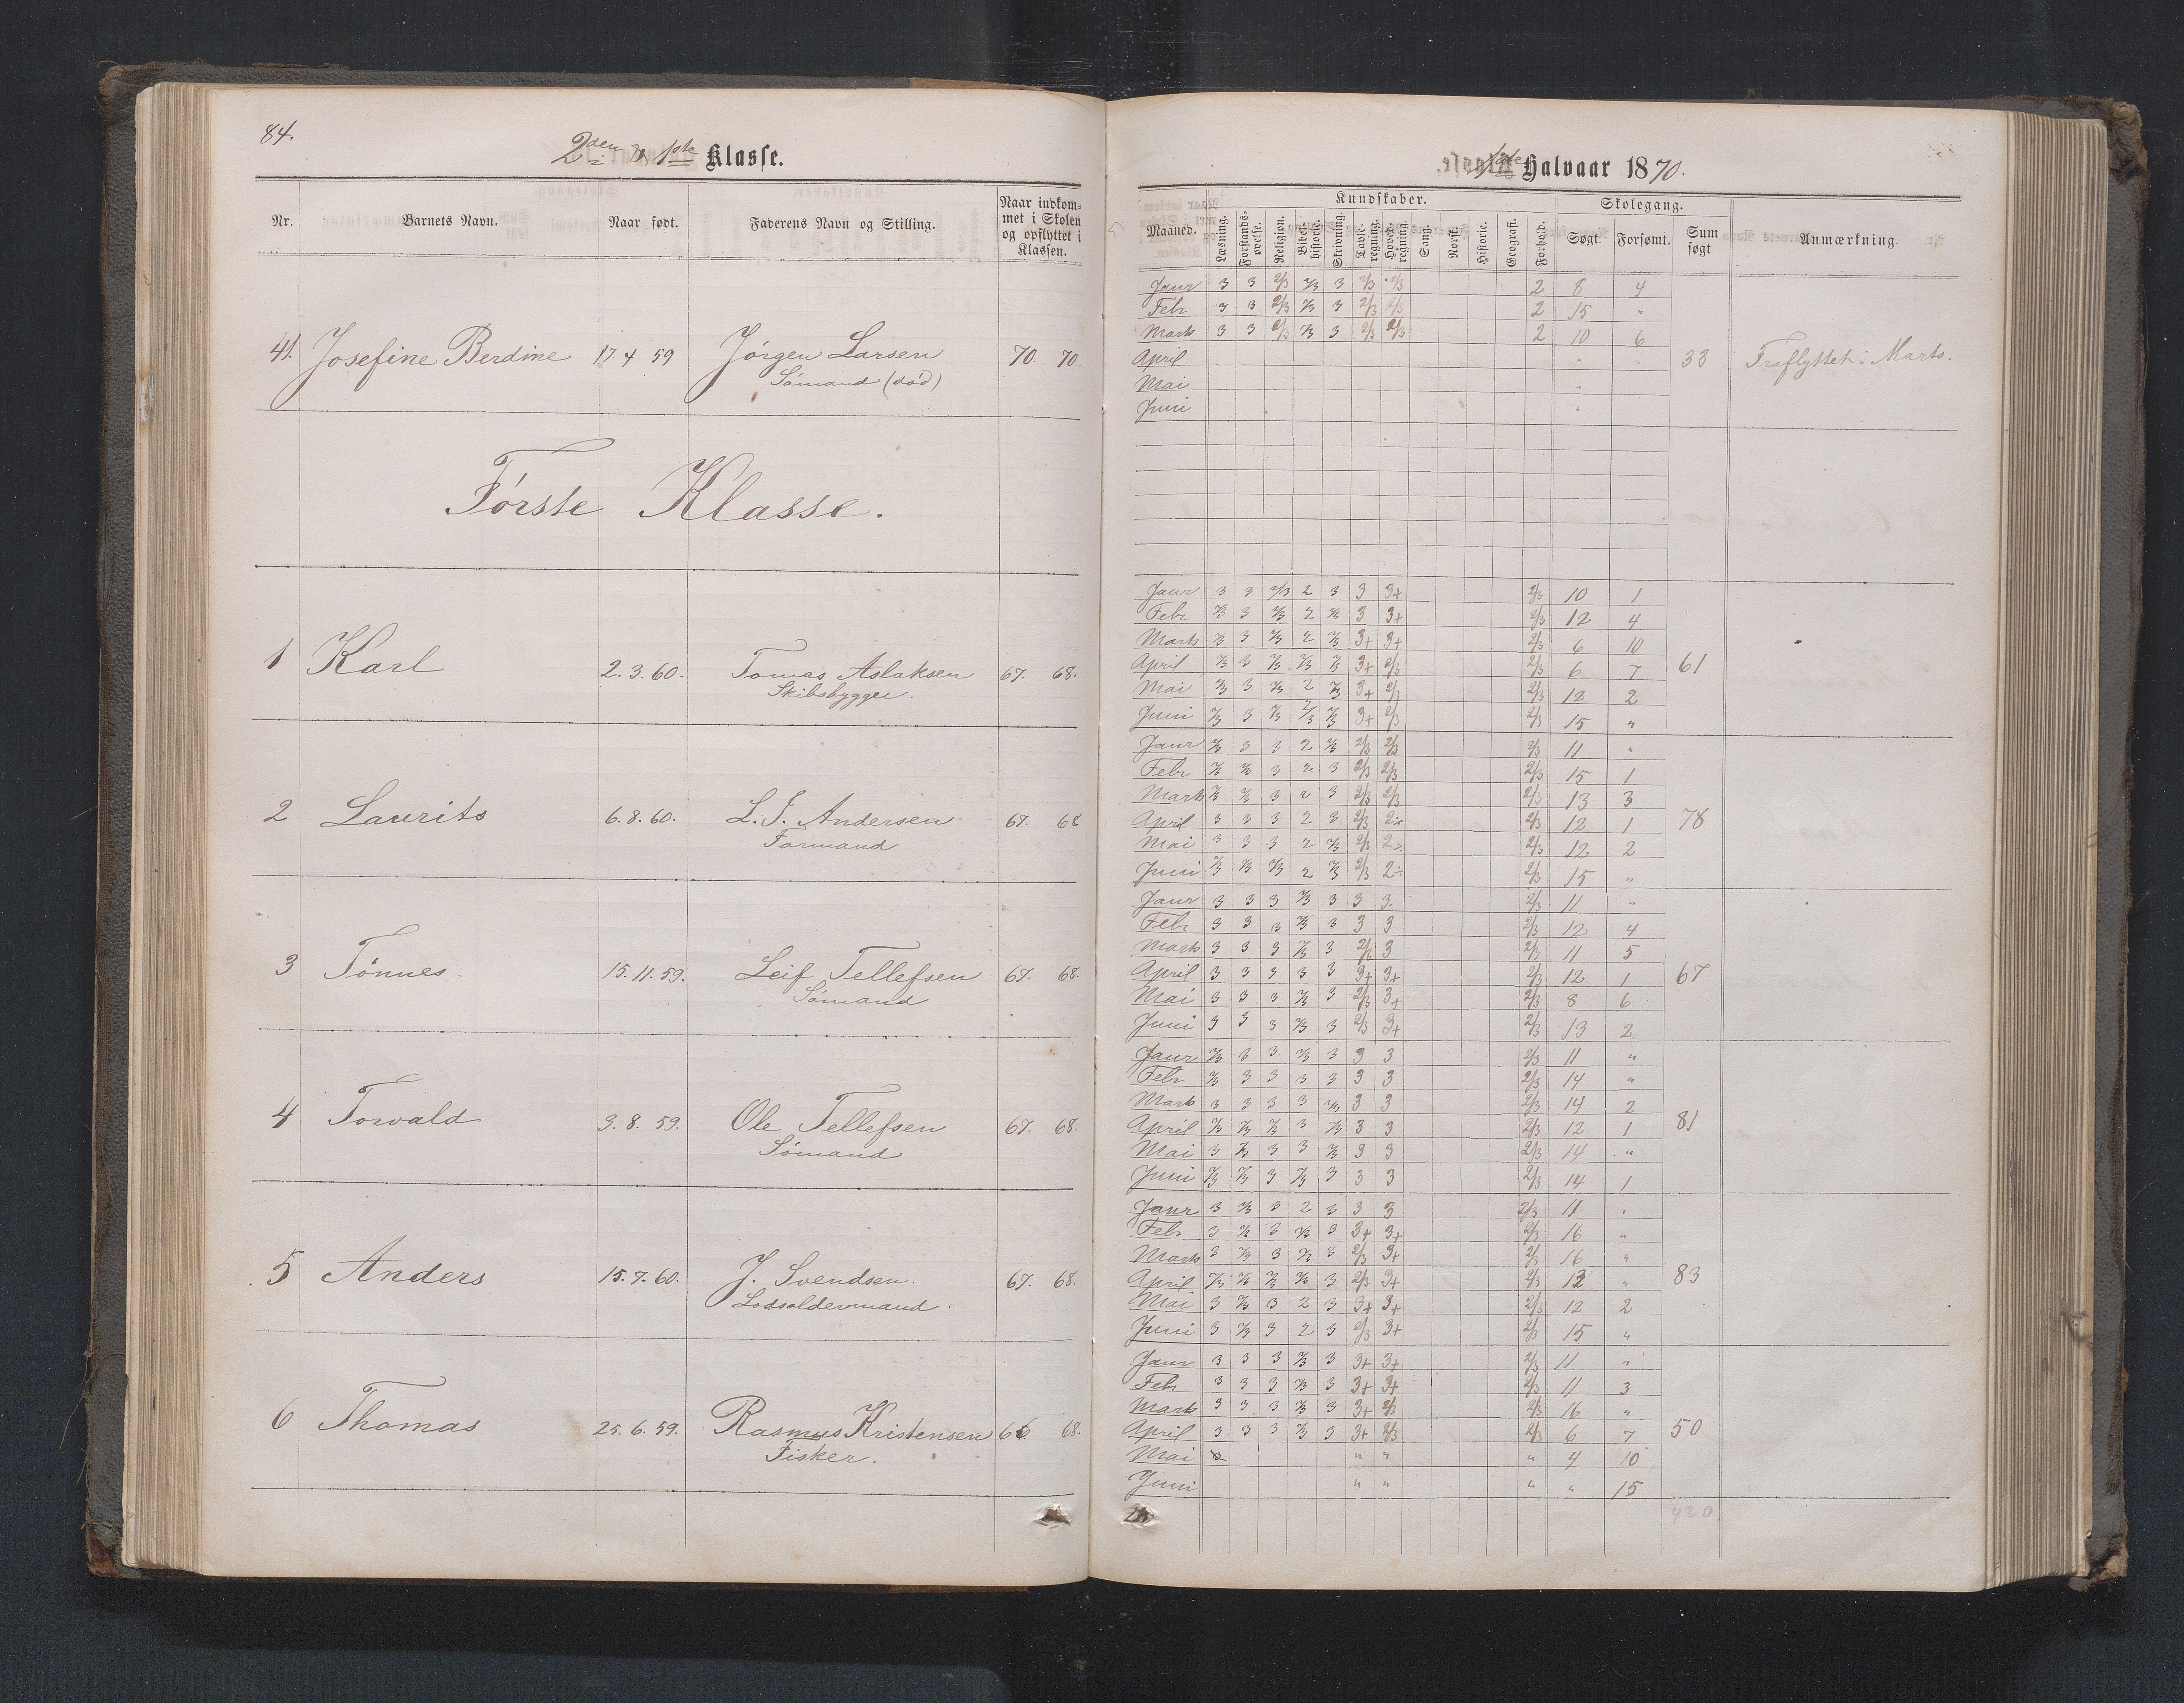 84.
2den & 1ste Klasse.
Nr. Barnets Navn. Naar født. Faderens Navn og Stilling. Naar indkom-
met i Skolen
og opflyttet i
Klassen.
41. Josefine Berdine 17 4 59 Jörgen Larsen 70. 70.
Sömand (död)
Förste Klasse.
1 Karl 2.3.60. Tomas Aslaksen 67. 68.
Skibsbygger.
2 Laurits 6.8.60. L. J. Andersen 67. 68
Formand
3 Tönnes 15.11.59. Leif Tellefsen 67. 68.
Sömand
4 Torvald 9.8.59. Ole Tellefsen 67. 68.
Sömand
5 Anders 15.7.60. J. Svendsen. 67. 68.
Lodsoldermand.
6 Thomas 25.6.59. Rasmus Kristensen 66. 68.
Fisker.
1ste Halvaar 1870.
Kundskaber. Skolegang.
Maaned. Læsning. Forstands-øvelse. Religion. Bibel-historie. Skrivning. Tavle-regning. Hoved-regning. Sang. Norsk. Historie. Geografi. Forhold. Søgt. Forsømt. Sum søgt Anmærkning.
Janr 3 3 2/3 2/3 3 2/3 2/3 2 8 4
Febr 3 3 2/3 2/3 3 2/3 2/3 2 15 "
Marts 3 3 2/3 2/3 3 2/3 2/3 2 10 6
April 33 Fraflyttet i Marts.
Mai "
Juni "
Janr 3 3 2/3 2 3 3 3+ 2/3 10 1
Febr 2/3 3 2/3 2 2/3 3 3+ 2/3 12 4
Marts 2/3 3 2/3 2 2/3 3+ 3+ 2/3 6 10
April 2/3 3 2/3 2/3 2/3 3+ 2/3 2/3 6 7 61
Mai 2/3 3 2/3 2 2/3 3+ 2/3 2/3 12 2
Juni 2/3 3 2/3 2/3 2/3 3+ 2/3 2/3 15 "
Janr 2/3 3 3 2 2/3 2/3 2/3 2/3 11 "
Febr 2/3 2/3 3 2 3 2/3 2/3 2/3 15 1
Marts 2/3 2/3 3 2 3 2/3 2/3 2/3 13 3
April 3 3 3 2 3 2/3 2÷ 2/3 12 1 78
Mai 3 3 3 2 2/3 2/3 2÷ 2/3 12 2
Juni 2/3 2/3 2/3 2 2/3 2/3 2÷ 2/3 15 "
Janr 3 3 3 2/3 3 3 3. 2/3 11 "
Febr 3 3 3 2/3 3 3 3 2/3 12 4
Marts 3 3 3 2/3 3 2/3 3 2/3 11 5
April 3 3 3 3 3 3+ 3+ 2/3 12 1 67
Mai 3 3 3 2/3 3 2/3 3+ 2/3 8 6
Juni 3 3 3 2/3 3 2/3 3+ 2/3 13 2
Janr 2/3 3 3 2/3 3 3 3 2/3 11 "
Febr 2/3 3 3 3 3 3 3 2/3 14 "
Marts 3 3 3 3 2/3 3 3 2/3 14 2
April 2/3 2/3 2/3 3 2/3 3 3 2/3 12 1 81
Mai 3 2/3 3 3 2/3 3 3 2/3 14 "
Juni 2/3 2/3 3 2/3 3 3 3 2/3 14 1
Janr 3 2/3 3 2 3 3 3 2/3 11 "
Febr 3 2/3 3 2/3 3 3+ 3+ 2/3 16 "
Marts 3 2/3 3 2/3 3 2/3 3+ 2/3 16 "
April 2/3 2/3 2/3 2/3 3 2/3 3+ 2/3 12 " 83
Mai 3 2/3 3 2 3 3+ 3+ 2/3 12 2
Juni 3 2/3 3 2 3 2/3 3+ 2/3 15 "
Janr 3 3 3 2/3 3 3+ 3+ 2/3 11 "
Febr 3 3 3 2/3 3 3+ 3+ 2/3 11 3
Marts 3 3 3 2/3 3 3+ 2/3 2/3 16 "
April 3 3 3 2/3 3 3+ 2/3 2/3 6 7 50
Mai " " " 4 10
Juni " " " " 15
420